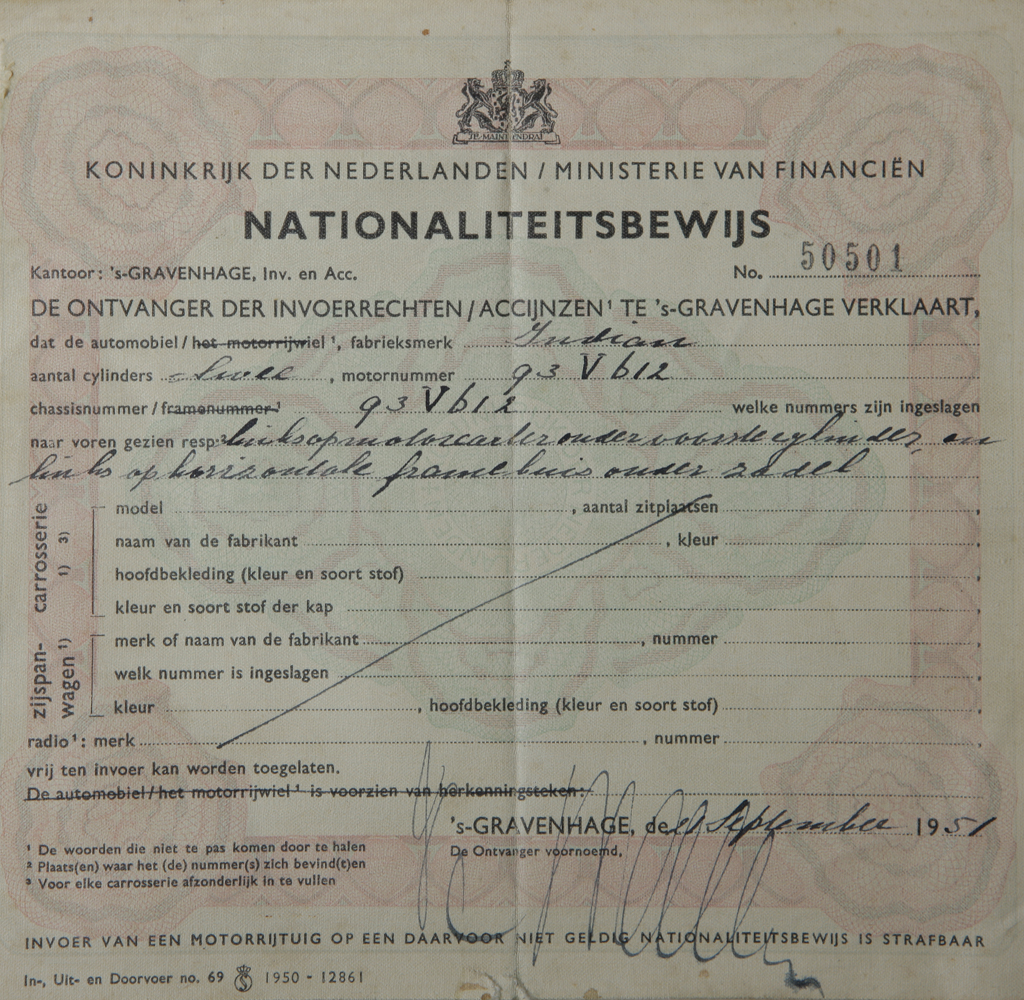 JE MAINTIENDRAI
KONINKRIJK DER NEDERLANDEN / MINISTERIE VAN FINANCIËN
NATIONALITEITSBEWIJS
Kantoor: 's-GRAVENHAGE, Inv. en Acc. No. 50501
DE ONTVANGER DER INVOERRECHTEN / ACCIJNZEN ¹ TE 's-GRAVENHAGE VERKLAART,
dat de automobiel / het motorrijwiel ¹, fabrieksmerk Indian
aantal cylinders twee, motornummer 93 V 612
chassisnummer / framenummer ¹ 93 V 612 welke nummers zijn ingeslagen
naar voren gezien resp: ² links op motorcarter onder voorste cylinder, en
links op horizontale framebuis onder zadel
carrosserie ¹) ³)
model , aantal zitplaatsen ,
naam van de fabrikant , kleur ,
hoofdbekleding (kleur en soort stof) ,
kleur en soort stof der kap ,
zijspan-
wagen ¹)
merk of naam van de fabrikant , nummer ,
welk nummer is ingeslagen ,
kleur , hoofdbekleding (kleur en soort stof) ,
radio ¹ : merk , nummer ,
vrij ten invoer kan worden toegelaten.
De automobiel / het motorrijwiel ¹ is voorzien van herkenningsteken:
's-GRAVENHAGE, de September 1951
De Ontvanger voornoemd,
¹ De woorden die niet te pas komen door te halen
² Plaats(en) waar het (de) nummer(s) zich bevind(t)en
³ Voor elke carrosserie afzonderlijk in te vullen
INVOER VAN EEN MOTORRIJTUIG OP EEN DAARVOOR NIET GELDIG NATIONALITEITSBEWIJS IS STRAFBAAR
In-, Uit- en Doorvoer no. 69 1950 - 12861